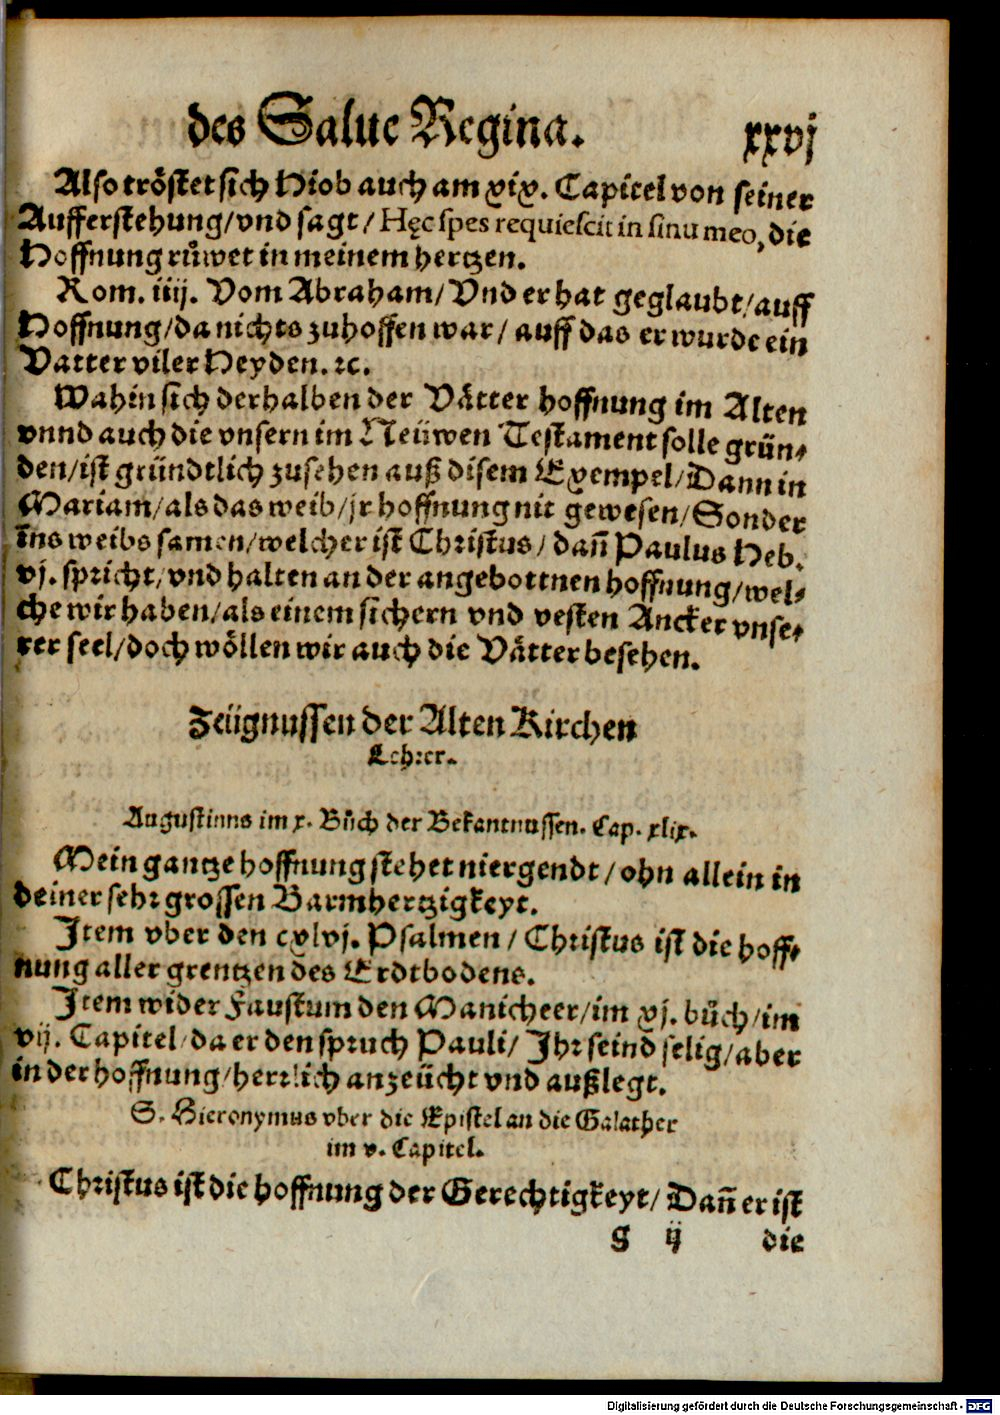 des Salue Regina. xxvj
Also tröstet sich Hiob auch am xix. Capitel von seiner
Aufferstehung/vnd sagt/ Hęc spes requiescit in sinu meo, die
Hoffnung růwet in meinem hertzen.
Rom. iiij. Vom Abraham/ Vnd er hat geglaubt/auff
Hoffnung/da nichts zuhoffen war/ auff das er wurde ein
Vatter viler Heyden. ꝛc.
Wahin sich derhalben der Vätter hoffnung im Alten
vnnd auch die vnsern im Neüwen Testament solle grün-
den/ist gründtlich zusehen auß disem Exempel/Dann in
Mariam/als das weib/jr hoffnung nit gewesen/Sonder
ins weibs samen/welcher ist Christus/ dañ Paulus Heb.
vj. spricht/vnd halten an der angebottnen hoffnung/wel-
che wir haben/als einem sichern vnd vesten Ancker vnse-
rer seel/doch wöllen wir auch die Vätter besehen.
Zeügnussen der Alten Kirchen
Lehrer.
Augustinus im x. Bůch der Bekantnussen. Cap. xlix.
Mein gantze hoffnung stehet niergendt/ohn allein in
deiner sehr grossen Barmhertzigkeyt.
Item vber den cxlvj. Psalmen/ Christus ist die hoff-
nung aller grentzen des Erdtbodens.
Item wider Faustum den Manicheer/im xj. bůch/im
vij. Capitel/da er den spruch Pauli/ Ihr seind selig/aber
in der hoffnung/herrlich anzeücht vnd außlegt.
S. Hieronymus vber die Epistel an die Galather
im v. Capitel.
Christus ist die hoffnung der Gerechtigkeyt/ Dañ er ist
g ij die
Digitalisierung gefördert durch die Deutsche Forschungsgemeinschaft - DFG